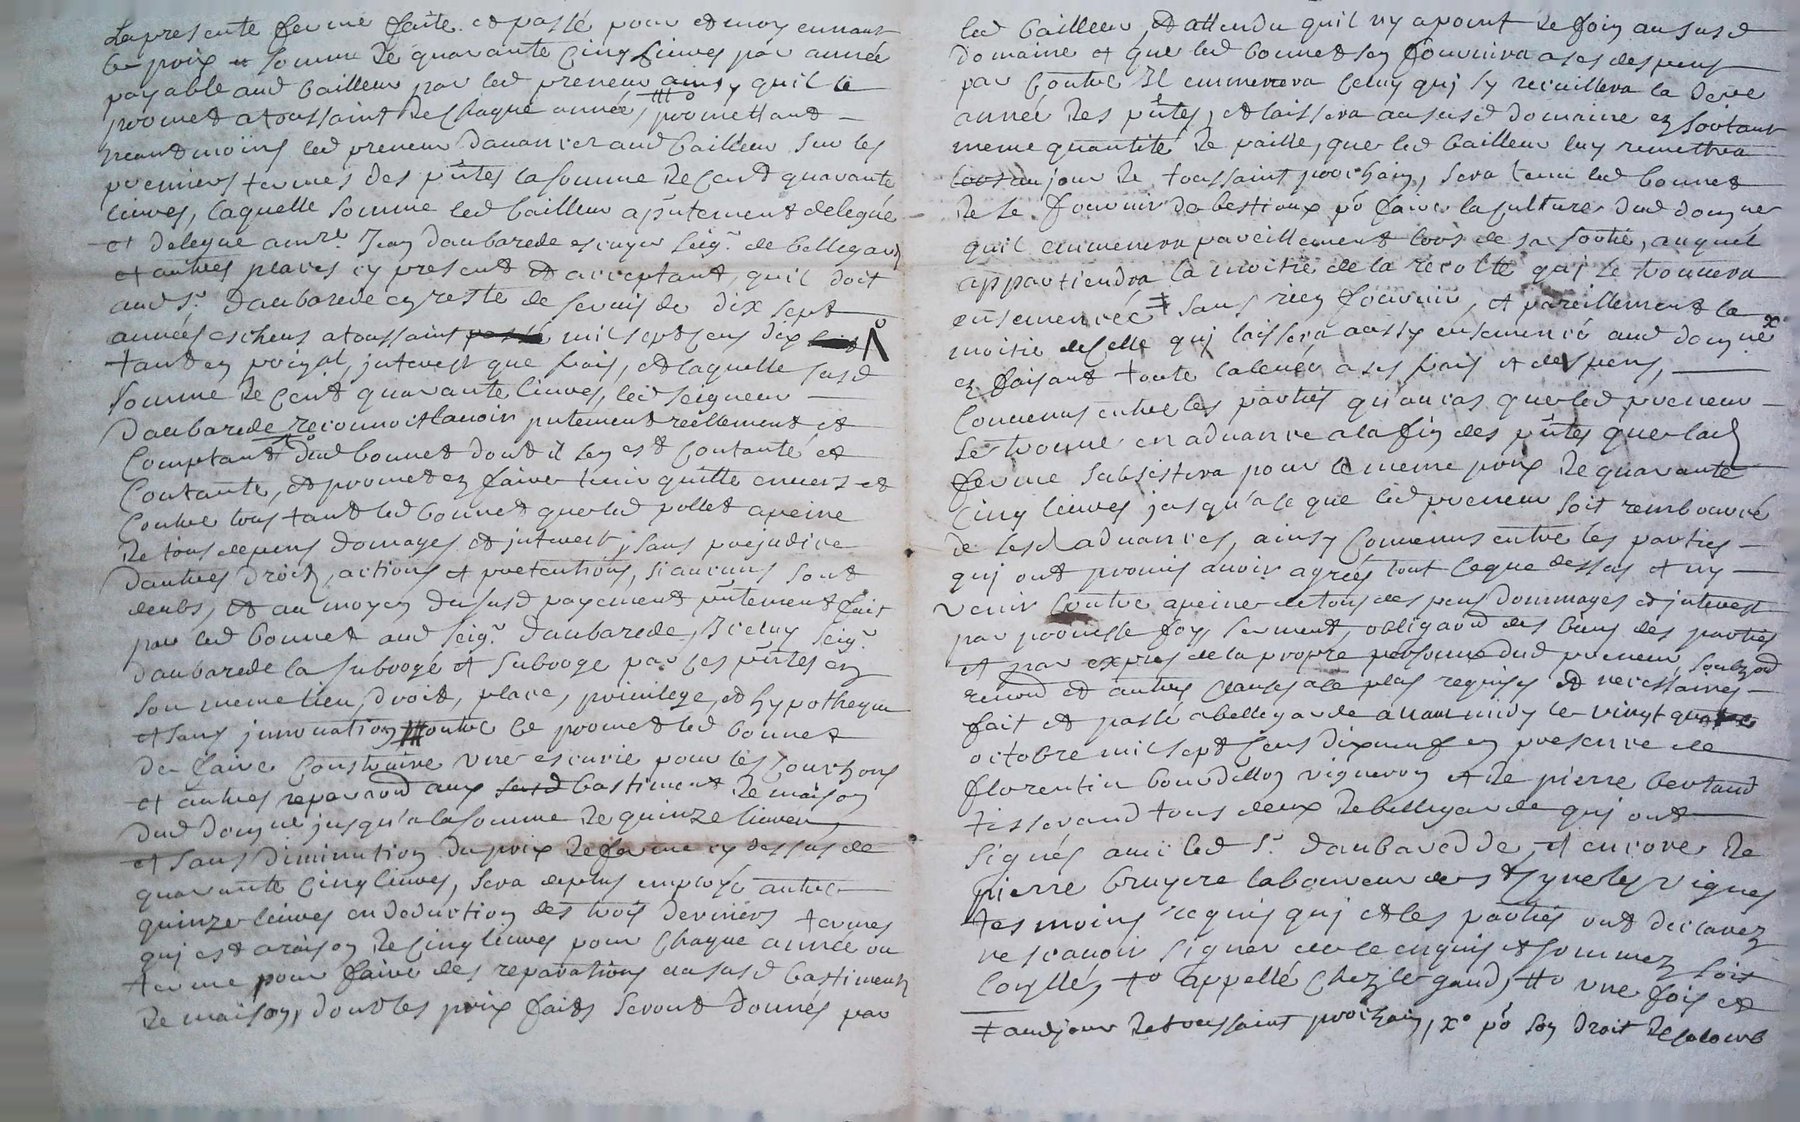 La presente ferme faite et passé pour et moy ennant
le prix et somme de quarante cinq livres par année
payable aud bailleur par led preneur ainsy quil le
promet a toussaint de chaque année, promettant
neantmoins led preneur davancer aud bailleur sur les
premiers termes des pntes la somme de cent quarante
livres, laquelle somme led bailleur a pntement delegué
et delegue a mre Jean daubarede escuyer seigr de bellegarde
et autres places cy present et acceptant, quil doit
aud sr daubarede en reste de servis de dix sept
années escheus a toussaint mil sept cens dix
tant en prinpal, interest que frais, et laquelle susd
somme de cent quarante livres, led seigneur
daubarede reconnoit lavoir pntement réellement et
comptant dud bonnet dont il sen est contanté et
contante, et promet en faire tenir quitte envers et
contre tous tant led bonnet que led pollet a peine
de tous depens domages et interest, sans prejudice
dautres droits, actions et pretentions, si aucuns sont
deubs, et au moyen du susd payement pntement fait
par led bonnet aud seigr daubarede, Iceluy seigr
daubarede la subrogé et subroge par ces pntes en
son meme lieu, droit, place, privilege, et hypotheque
et sans innovation, outre ce promet led bonnet
de faire construire une escurie pour les cochons
et autres reparaons aux bastiment de maison
dud domne jusqu'a la somme de quinze livres
et sans diminution du prix de ferme cy dessus de
quarante cinq livres, sera deplus employé autre
quinze livres en deduction des trois derniers termes
qui est a raison de cinq livres pour chaque année ou
terme pour faire des reparations au susd bastiments
de maison, dont les prix faits seront donnés par
led bailleur, et attendu quil ny a point de foin au susd
domaine et que led bonnet sen fournira a ses despens
par contre Il emmenera celuy qui sy recuillera la dere
année des pntes, et laissera au susd domaine en sortant
meme quantité de paille, que led bailleur luy remettra
au jour de toussaint prochain, sera tenu led bonnet
de se fournir de bestiaux pr faire la culture dud domne
quil emmenera pareillement lors de sa sortie, auquel
appartiendra la moitié de la recolte qui se trouvera
ensemencée sans rien fournir, et pareillement la
moitié de celle qui laissera aussy ensemencé aud domne
en faisant toute la levée a ses frais et despens,
Convenus entre les parties qu'au cas que led preneur
se trouve en advance a la fin des pntes que lad
ferme subsistera pour le meme prix de quarante
cinq livres jusqu'a ce que led preneur soit remboursé
de sesd advances, ainsy convenus entre les parties
qui ont promis avoir agréés tout ce que dessus et ny
venir contre a peine de tous despens dommages et interest
par promesse foy, serment, obligaon des biens des parties
et par expres de la propre personne dud preneur, soubzon
renon et autres clauses a ce plus requises et necessaires
fait et passé a bellegarde avant midy le vingt quatre
octobre mil sept cens dix neuf en presence de
florentin bourdillon vigneron et de pierre bertaud
tisserand tous deux de bellegarde qui ont
signés avec led sr daubaredde, et encore de
pierre bruyere laboureur de st syre les vignes
tesmoins requis qui et les parties ont declarez
ne scavoir signer de ce enquis et sommez sois
Conllé, to appellé chez le gaud, tto une fois et
+ aud jour de toussaint prochain, xo po son droit de colome